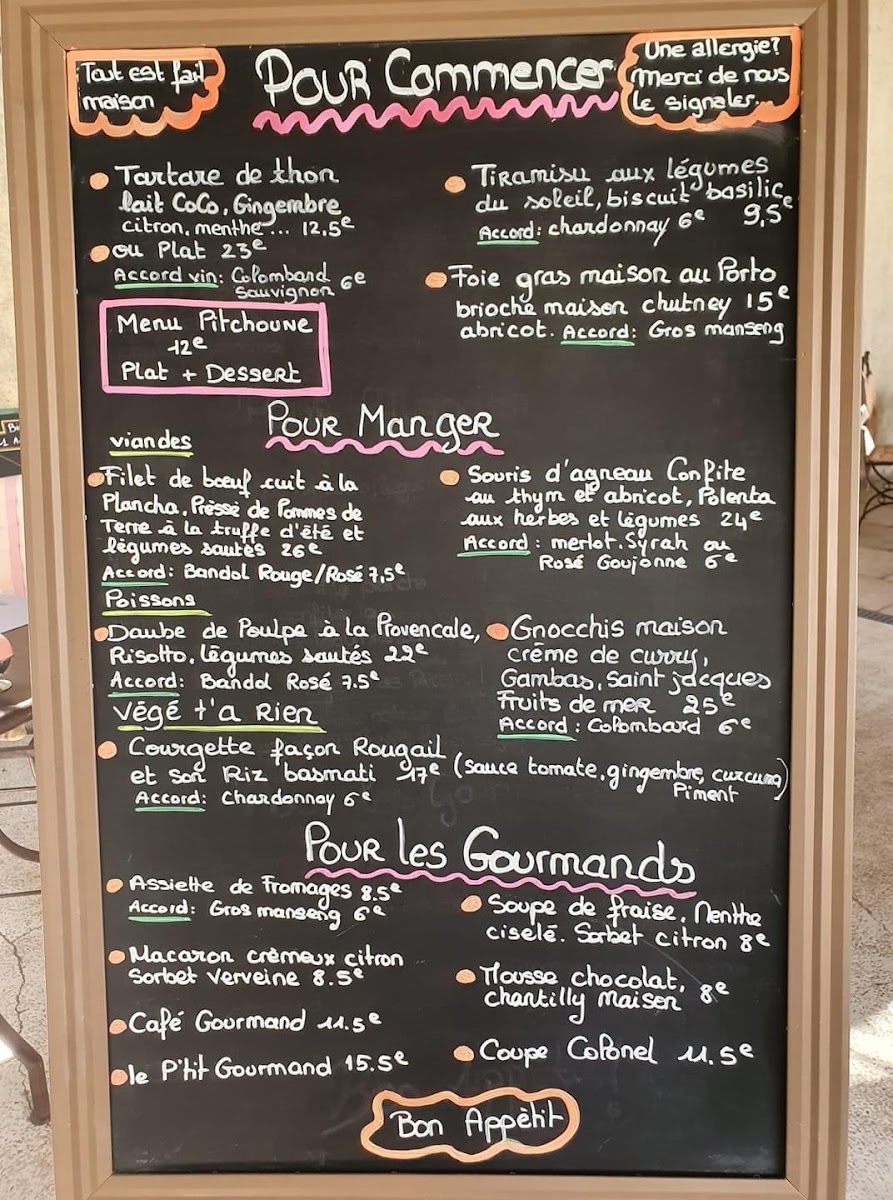 Tout est fait
maison
POUR Commencer
Une allergie?
Merci de nous
le signaler...
Tartare de thon
lait CoCo, Gingembre
citron, menthe... 12,5e
ou Plat 23e
Accord vin: Colombard
Sauvignon 6e
Tiramisu aux légumes
du soleil, biscuit basilic
9,5e
Accord: chardonnay 6e
Foie gras maison au Porto
brioche maison chutney 15e
abricot. Accord: Gros manseng
Menu Pitchoune
12e
Plat + Dessert
Pour Manger
viandes
Filet de bœuf cuit à la
Plancha, Pressé de Pommes de
Terre à la truffe d'été et
légumes sautés 26e
Accord: Bandol Rouge/Rosé 7,5e
Souris d'agneau Confite
au thym et abricot, Polenta
aux herbes et légumes 24e
Accord: merlot. Syrah ou
Rosé Goujonne 6e
Poissons
Daube de Poulpe à la Provencale,
Risotto, légumes sautés 22e
Accord: Bandol Rosé 7.5e
Gnocchis maison
crème de curry,
Gambas, Saint jacques
Fruits de mer 25e
Accord: Colombard 6e
Végé t'a Rien
Courgette façon Rougail
et son Riz basmati 17e (sauce tomate, gingembre, curcuma)
Piment
Accord: Chardonnay 6e
Pour les Gourmands
Assiette de Fromages 8.5e
Accord: Gros manseng 6e
Macaron crèmeux citron
Sorbet Verveine 8.5e
Café Gourmand 11.5e
le P'tit Gourmand 15.5e
Soupe de fraise, Menthe
ciselé. Sorbet citron 8e
Mousse chocolat,
chantilly maison 8e
Coupe Colonel 11.5e
Bon Appètit